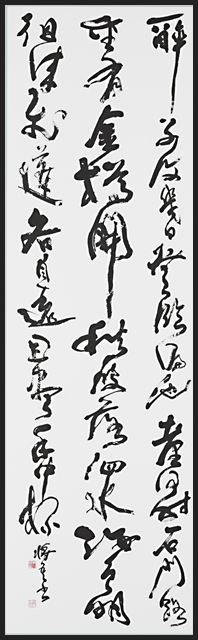 醉別復幾日登臨遍池臺何時石門路
重有金樽開秋波落泗水海色明
徂徠飛蓬各自遠且盡手中杯